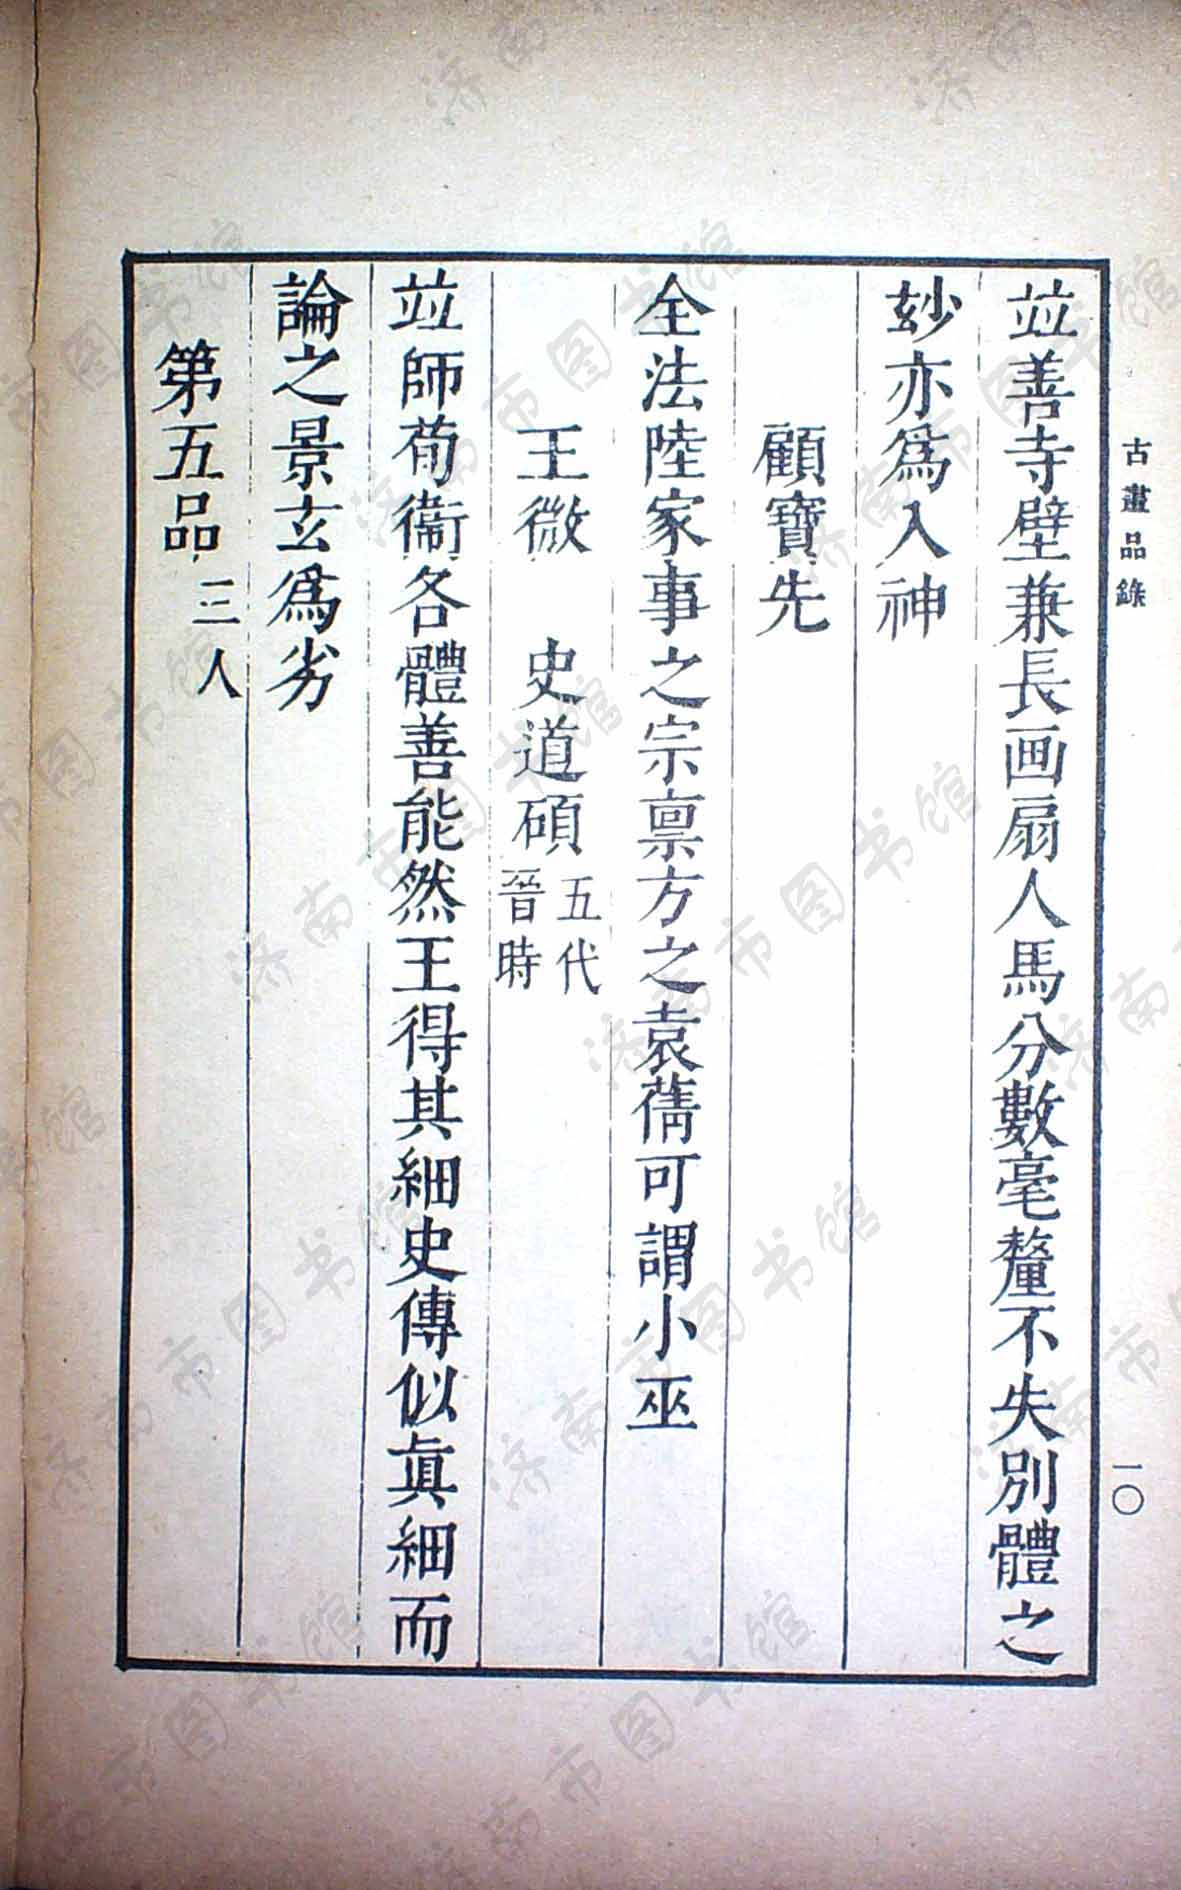 古畫品錄
一〇
竝善寺壁兼長画扇人馬分數毫釐不失別體之
玅亦爲入神
顧寶先
全法陸家事之宗禀方之袁蒨可謂小巫
王微 史道碩五代晉時
竝師荀衞各體善能然王得其細史傳似眞細而
論之景玄爲劣
第五品三人
济南市图书馆